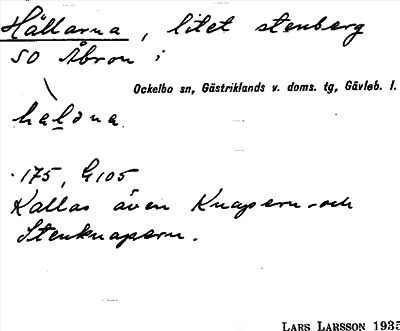 Hällarna, litet stenberg
SO Åbron i
Ockelbo sn, Gästriklands v. doms. tg, Gävleb. l.
halɔna
175, G105
Kallas även Knapern och
Stenknapern.
LARS LARSSON 1935